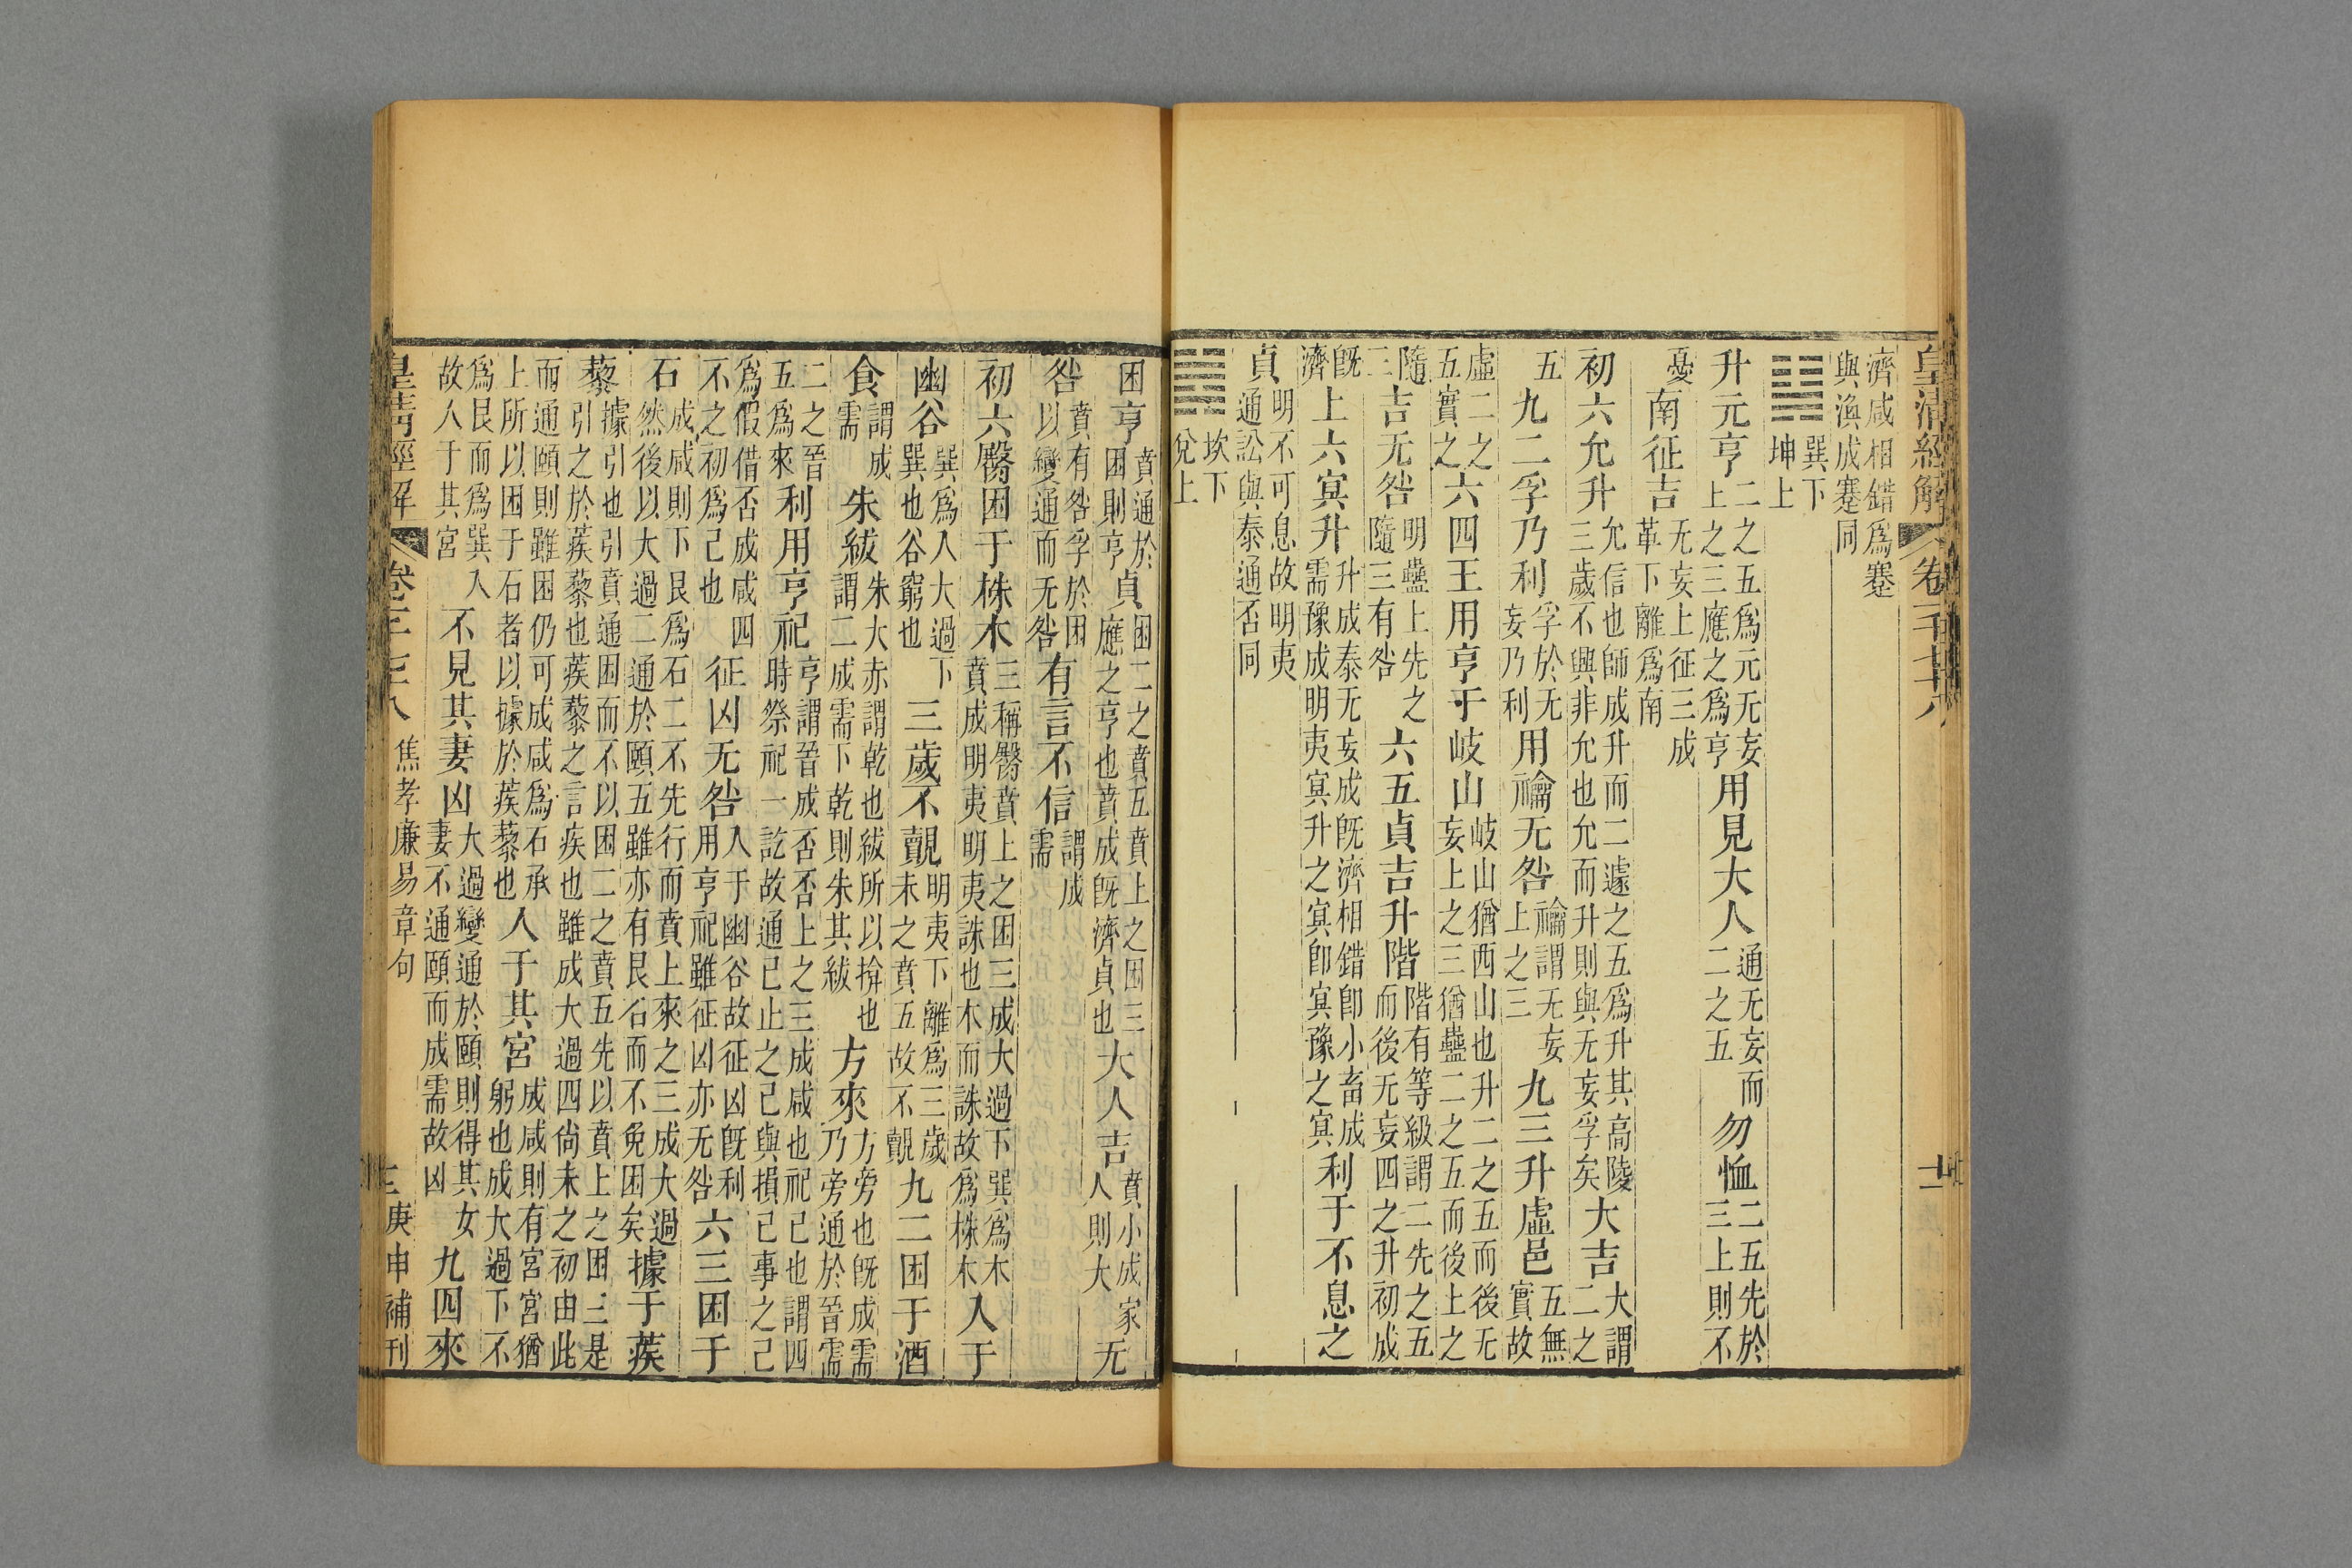 皇清經解 卷一千七十八
濟咸相錯爲蹇
與渙成蹇同
巽下
坤上
升元亨二之五爲元无妄
上之三應之爲亨用見大人通无妄而
二之五勿恤二五先於
三上則不
憂南征吉无妄上征三成
革下離爲南
初六允升允信也師成升而二遽之五爲升其高陵
三歲不興非允也允而升則與无妄孚矣大吉大謂
二之
五九二孚乃利孚於无
妄乃利用禴无咎禴謂无妄
上之三九三升虛邑五無
實故
虛二之
五實之六四王用亨于岐山岐山猶西山也升二之五而後无
妄上之三猶蠱二之五而後上之
隨
三吉无咎明蠱上先之
隨三有咎六五貞吉升階階有等級謂二先之五
而後无妄四之升初成
既
濟上六冥升升成泰无妄成既濟相錯卽小畜成
需豫成明夷冥升之冥卽冥豫之冥利于不息之
貞明不可息故明夷
通訟與泰通否同
坎下
兌上
困亨賁通於
困則亨貞困二之賁五賁上之困三
應之亨也賁成既濟貞也大人吉賁小成家
人則大无
咎賁有咎孚於困
以變通而无咎有言不信謂成
需
初六臀困于株木三稱臀賁上之困三成大過下巽爲木
賁成明夷明夷誅也木而誅故爲株木入于
幽谷巽爲入大過下
巽也谷窮也三歲不覿明夷下離爲三歲
未之賁五故不覿九二困于酒
食謂成
需朱紱朱大赤謂乾也紱所以揜也
謂二成需下乾則朱其紱方來方旁也既成需
乃旁通於晉需
二之晉
五爲來利用亨祀亨謂晉成否否上之三成咸也祀已也謂四
時祭祀一訖故通已止之己與損己事之己
爲假借否成咸四
不之初爲己也征凶无咎入于幽谷故征凶既利
用亨祀雖征凶亦无咎六三困于
石成咸則下艮爲石二不先行而賁上來之三成大過
然後以大過二通於頤五雖亦有艮石而不免困矣據于蒺
藜據引也引賁通困而不以困二之賁五先以賁上之困三是
引之於蒺藜也蒺藜之言疾也雖成大過四尙未之初由此
而通頤則雖困仍可成咸爲石承
上所以困于石者以據於蒺藜也入于其宮成咸則有宮宮猶
躬也成大過下不
爲艮而爲巽入
故入于其宮不見其妻凶大過變通於頤則得其女
妻不通頤而成需故凶九四來
皇清經解 卷一千七十八 焦孝廉易章句 庚申補刊